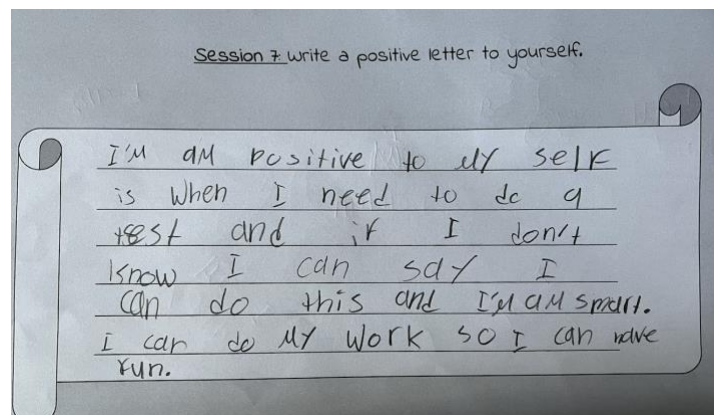 Session 7 write a positive letter to yourself.
I'M aM positive to My self
is when I need to do a
test and if I don't
know I can say I
can do this and I'M aM smart.
i can do My work so I can have
fun.